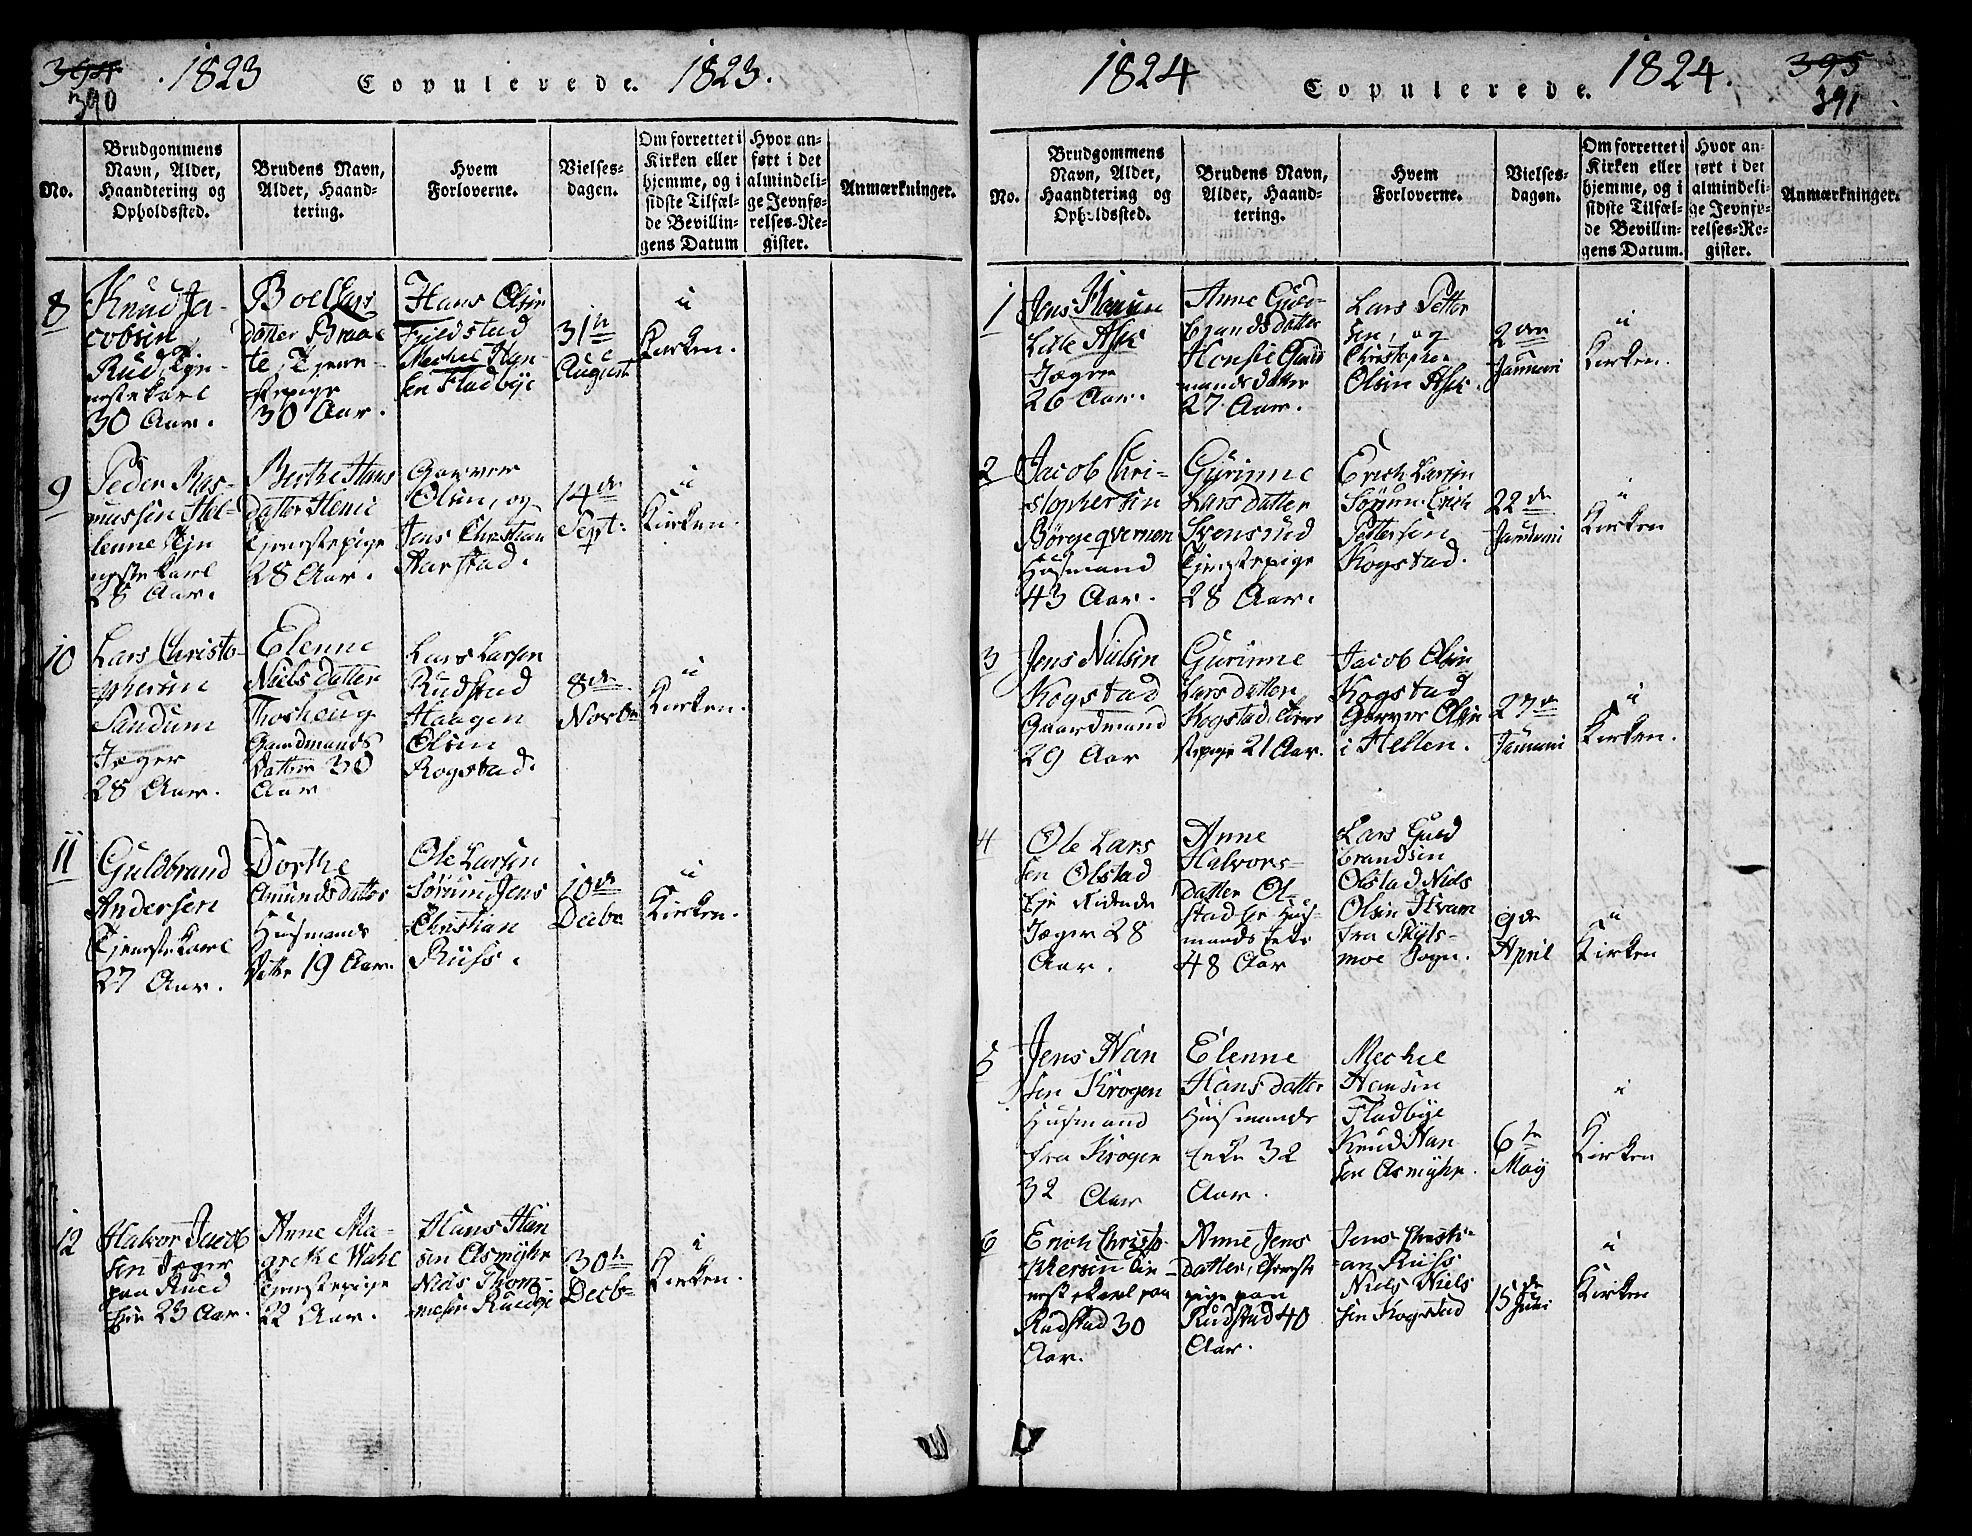 394
390
1823
Copulerede.
1823.
No.
Brudgommens
Navn, Alder,
Haandtering og
Opholdssted.
Brudens Navn,
Alder, Haand-
tering.
Hvem
Forloverne.
Vielses-
dagen.
Om forrettet i
Kirken eller
hjemme, og i
sidste Tilfæl-
de Bevillin-
gens Datum
Hvor an-
ført i det
almindeli-
ge Jevnfø-
relses-Re-
gister.
Anmærkninger.
8
Knud Ja-
cobsen
Rud, Tjen-
nestekarl
30 Aar.
Boel Lars
datter
te, Tjene-
stepige
30 Aar.
Hans Olsen
Fjeldstad
Mechel Han-
sen Fladbye
31te
August
i
Kirken.
9
Peder Ras-
mussen Hel-
lenne Tjen
nestekarl
28 Aar.
Berthe Hans
datter
Tjenestepige
28 Aar.
Garver
Olsen, og
Jens Christian
Aarstad.
14de
Sept:
i
Kirken.
10
Lars Christo-
phersen
Sandum
Jæger
28 Aar.
Elenne
Nielsdatter
Thoshoug
Gaardmands
datter 30
Aar
Lars Larsen
Rudstad
Haagen
Olsen
Kogstad.
8de
Novbr
i
Kirken.
11
Guldbrand
Andersen
Tjenestekarl
27 Aar.
Dorthe
Amundsdatter
Husmands
datter 19 Aar.
Ole Larsen
Sørum Jens
Christian
Russ.
10de
Decbr
i
Kirken.
12
Halvor Jacob
sen Jæger
paa Rued
Eje 23 Aar.
Anne Ma-
grethe Wahl
Tjenestepige
22 Aar.
Hans Han
sen Asmyhr
Niels Thom-
mesen Ruedbye
30te
Decbr
i
Kirken.
1824
Copulerede.
1824.
395
391
No.
Brudgommens
Navn, Alder,
Haandtering og
Opholdssted.
Brudens Navn,
Alder, Haand-
tering.
Hvem
Forloverne.
Vielses-
dagen.
Om forrettet i
Kirken eller
hjemme, og i
sidste Tilfæl-
de Bevillin-
gens Datum.
Hvor an-
ført i det
almindeli-
ge Jevnfø-
relses-Re-
gister.
Anmærkninger.
1
Jens Hansen
Lille Ask
Jæger
26 Aar.
Anne Guld-
brandsdatter
mands datter
27 Aar.
Lars Petter
sen, og
Christopher
Olsen Ask.
2den
Januari
i
Kirken.
2
Jacob Chri-
stophersen
Børgeqvernen
Husmand
43 Aar.
Gurinne
Larsdatter
Svensrud
Tjenstepige
28 Aar.
Erich Larsen
Sørum Erich
Pettersen
Kogstad.
22de
Januari
i
Kirken
3
Jens Nielsen
Kogstad
Gaardmand
29 Aar
Gurinne
Larsdatter
Kogstad, Tiene
stepige 21 Aar.
Jacob Olsen
Kogstad
Garver Olsen
i Hellen.
27de
Januari
i
Kirken.
4
Ole Lars
sen Olstad
Eje Ridende
Jæger 28
Aar.
Anne
Halvors-
datter Ol-
stad Eje Hus-
mands Enke
48 Aar
Lars Guld
brandsen
Olstad Niels
Olsen Kvam
fra Skyts-
moe Sogn.
9de
April
i
Kirken
5
Jens Han
sen Krogen
Husmand
fra Krogen
32 Aar
Elenne
Hansdatter
Husmands
Enke 32
Aar.
Mechel
Hansen
Fladbye
Knud Han
sen Asmyhr.
6te
May
i
Kirken
6
Erich Christo-
phersen Tie-
nestekarl paa
Rudstad 30
Aar.
Anne Jens
datter, Tjeneste
pige paa
Rudstad 40
Aar.
Jens Christi-
an Russ
Niels Niels
sen Kogstad
15de
Juni
i
Kirken